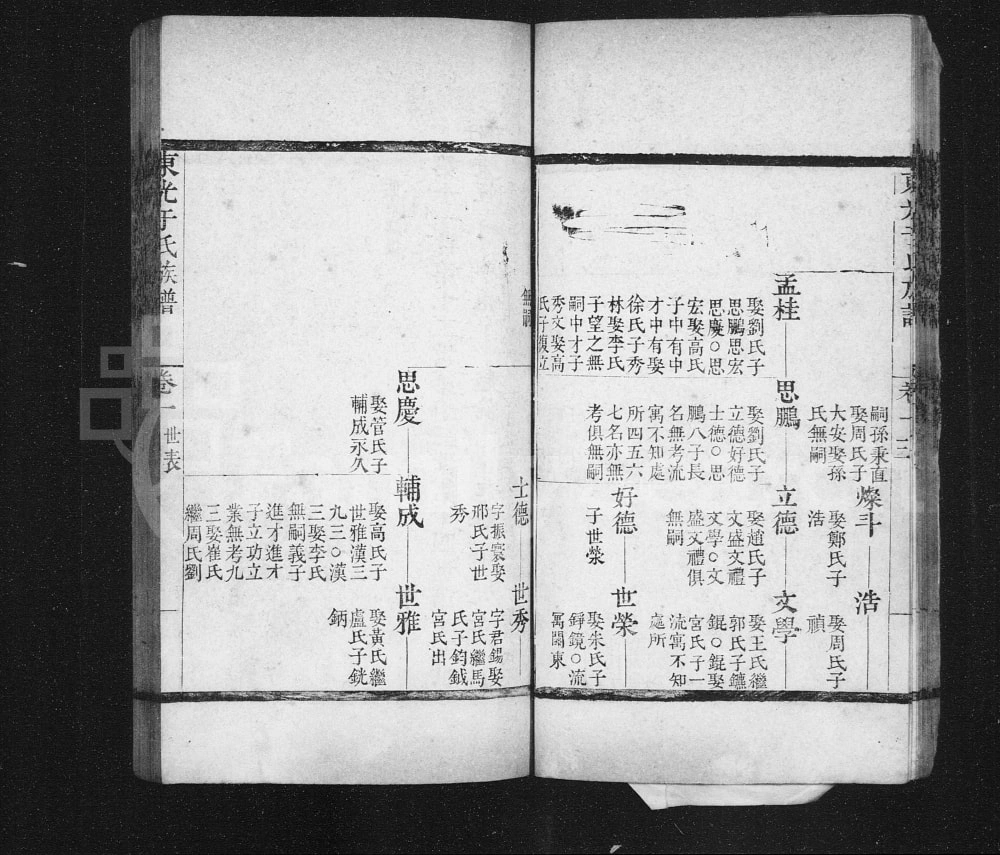 嗣孫秉直
娶周氏子
大安娶孫
氏無嗣
燦斗
娶鄭氏子
浩
浩
娶周氏子
禎
孟桂
娶劉氏子
思鵬思宏
思慶○思
宏娶高氏
子中有中
才中有娶
徐氏子秀
林娶李氏
子望之無
嗣中才子
秀文娶高
氏子復立
無嗣
思鵬
娶劉氏子
立德好德
士德○思
鵬八子長
名無考流
寓不知處
所四五六
七名亦無
考俱無嗣
立德
娶趙氏子
文盛文禮
文學○文
盛文禮俱
無嗣
文學
娶王氏繼
郭氏子鑣
錕○錕娶
宮氏子一
流寓不知
處所
好德
子世榮
世榮
娶朱氏子
錚鏡○流
寓關東
士德
字振寰娶
邢氏子世
秀
世秀
字君錫娶
宮氏繼馬
氏子鈞鉞
宮氏出
思慶
娶管氏子
輔成永久
輔成
娶高氏子
世雅漢三
九三○漢
三娶李氏
無嗣義子
進才進才
子立功立
業無考九
三娶崔氏
繼周氏劉
世雅
娶黃氏繼
盧氏子銚
鈵
東光于氏族譜
卷一
世表